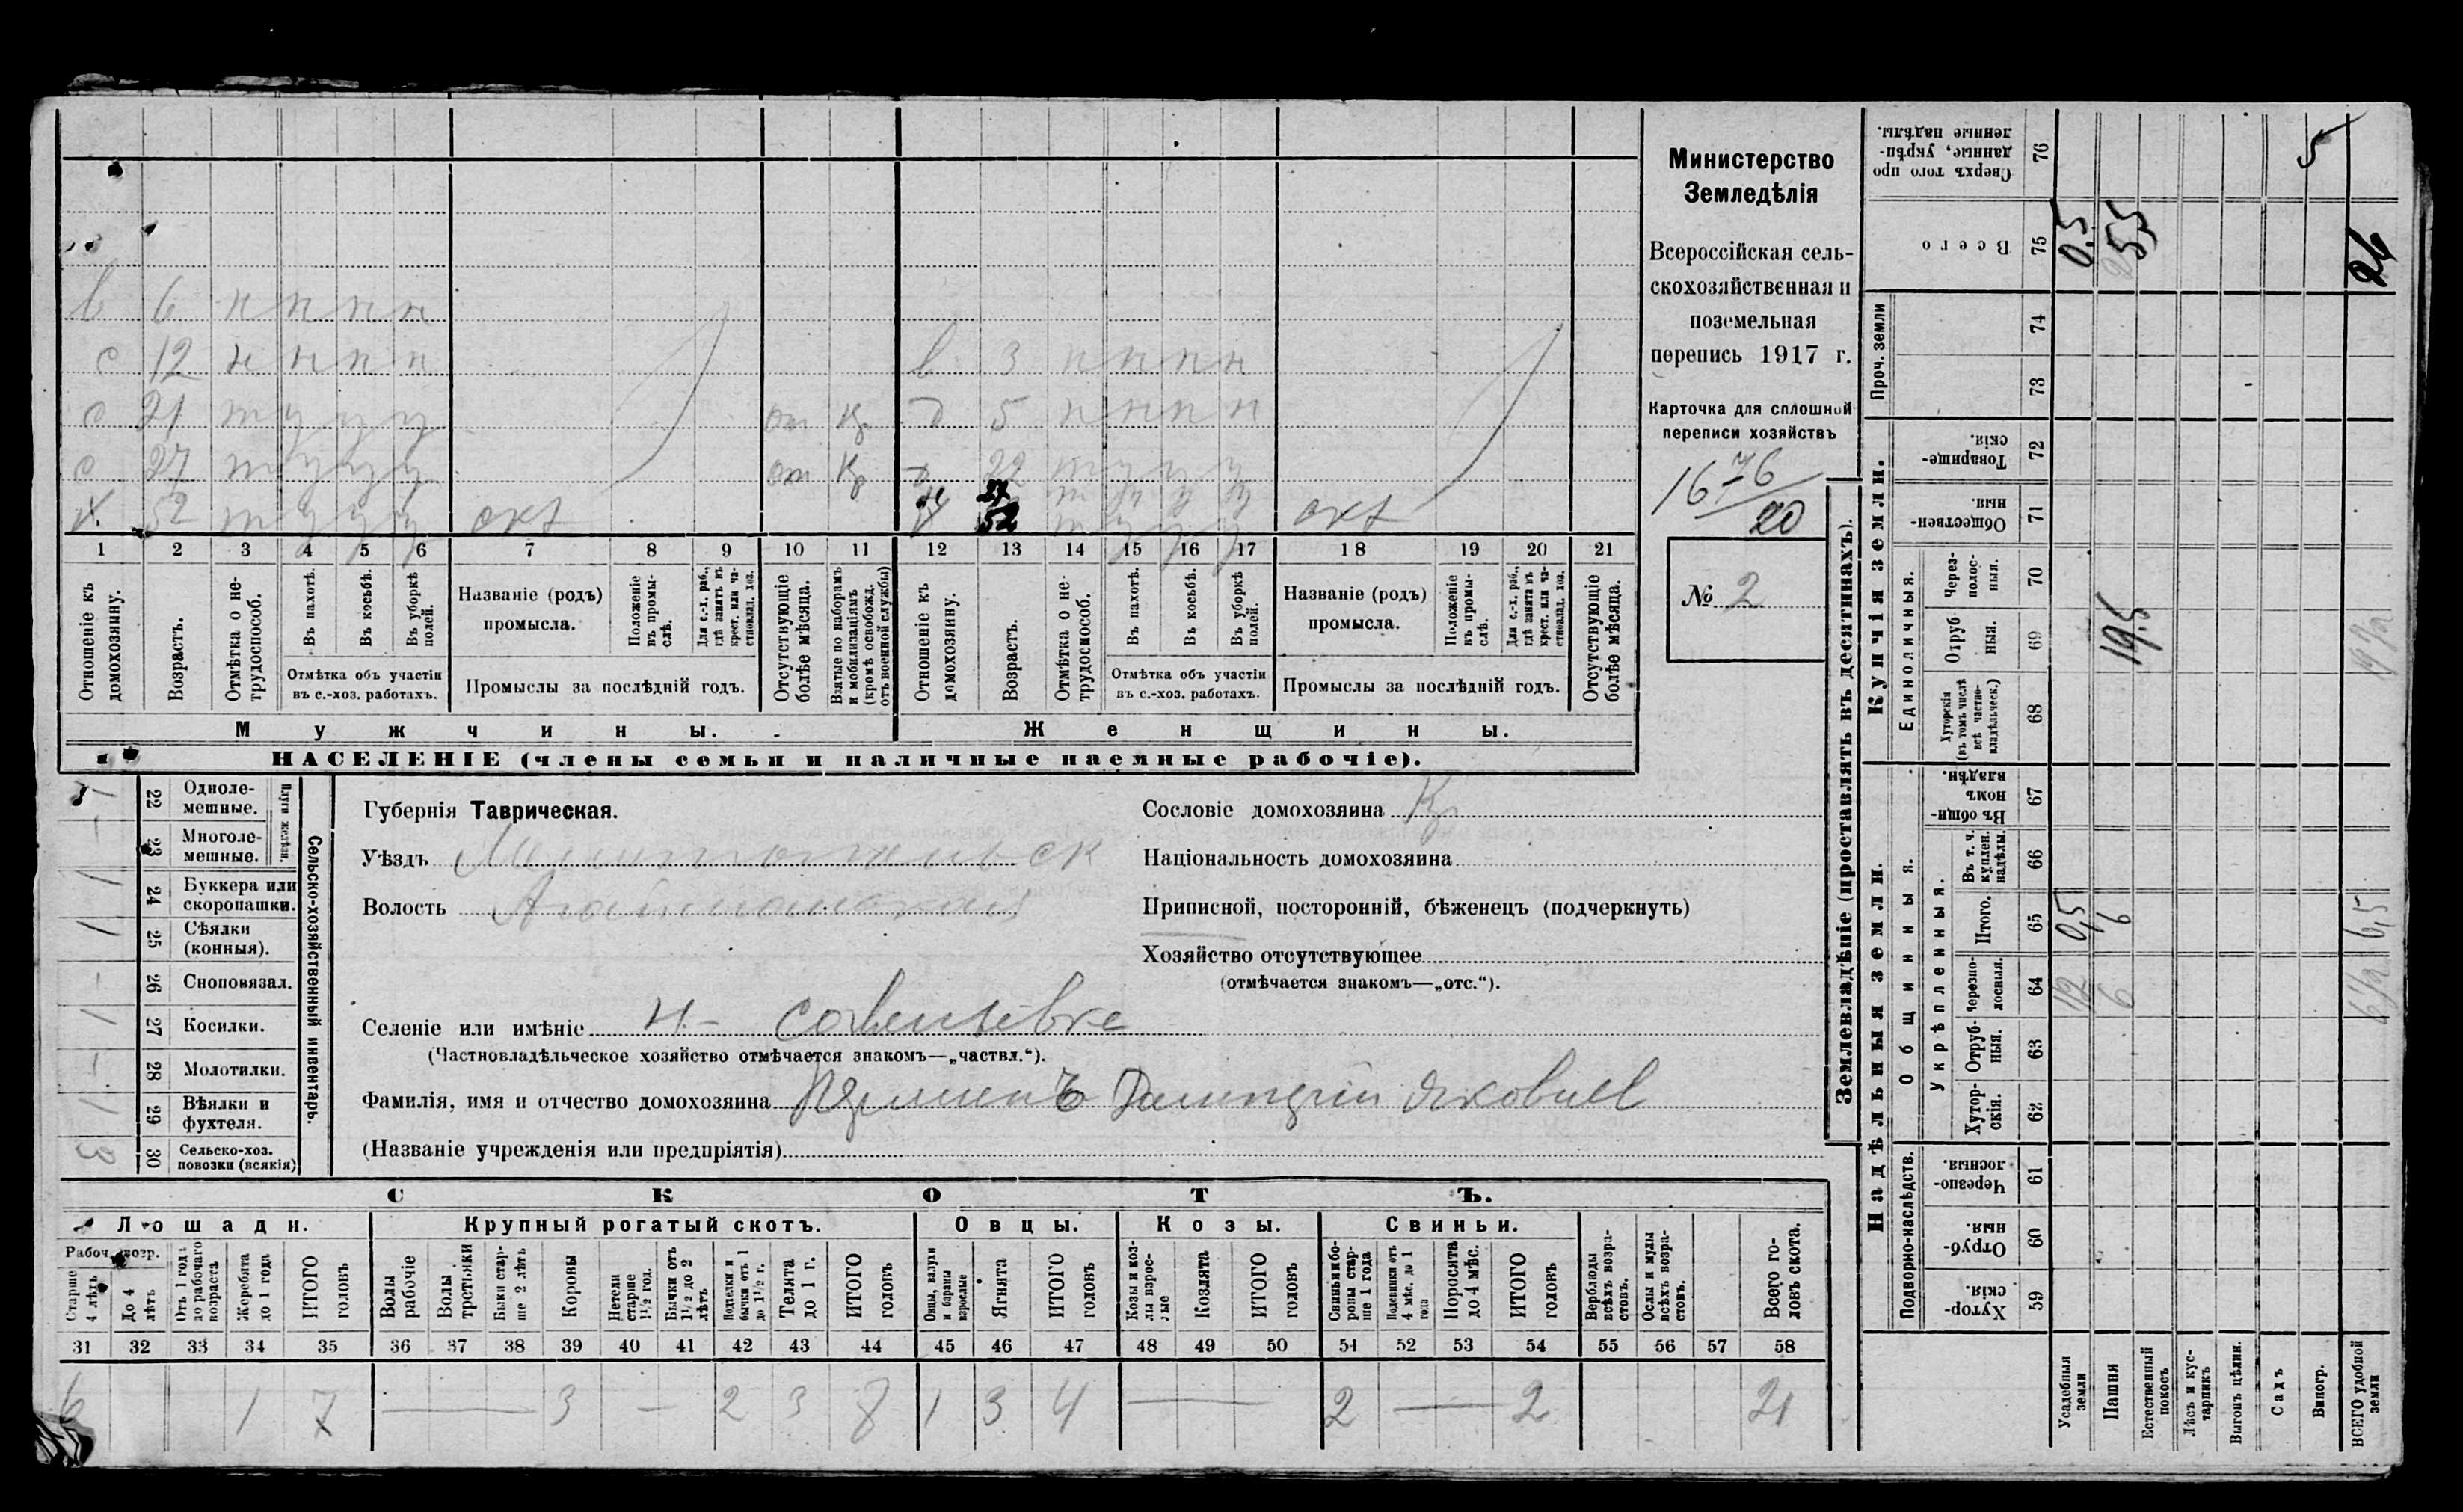 в 6 н н н н
с 12 н н н н в 3 н н н н
с 21 т у у у от Кр д 5 н н н н
с 27 т у у у от Кр д 22 т у у у
27 т у у у
х 52 т у у у окт 52 т у у у окт
1 2 3 4 5 6 7 8 9 10 11 12 13 14 15 16 17 18 19 20 21
Отношеніе къ домохозяину.
Возрастъ.
Отмѣтка о не-трудоспособ.
Въ пахотѣ.
Въ косьбѣ.
Въ уборкѣ полей.
Отмѣтка объ участіи
въ с.-хоз. работахъ.
Названіе (родъ)
промысла.
Положеніе въ промы-слѣ.
Для с.-х. раб., гдѣ занятъ въ крест. или ча-стновлад. хоз.
Промыслы за послѣдній годъ.
Отсутствующіе болѣе мѣсяца.
Взятые по наборамъ и мобилизаціямъ (кромѣ освобожд. отъ военной службы)
Отношеніе къ домохозяину.
Возрастъ.
Отмѣтка о не-трудоспособ.
Въ пахотѣ.
Въ косьбѣ.
Въ уборкѣ полей.
Отмѣтка объ участіи
въ с.-хоз. работахъ.
Названіе (родъ)
промысла.
Положеніе въ промы-слѣ.
Для с.-х. раб., гдѣ занята въ крест. или ча-стновлад. хоз.
Промыслы за послѣдній годъ.
Отсутствующіе болѣе мѣсяца.
Мужчины. Женщины.
НАСЕЛЕНІЕ (члены семьи и наличные наемные рабочіе).
Министерство
Земледѣлія
Всероссійская сель-
скохозяйственная и
поземельная
перепись 1917 г.
Карточка для сплошной
переписи хозяйствъ
1676
20
№ 2
Сельско-хозяйственный инвентарь.
Плуги желѣзн.
22 Одноле-мешные.
- 23 Многоле-мешные.
1 24 Буккера или скоропашки.
1 25 Сѣялки (конныя).
- 26 Сноповязал.
1 27 Косилки.
- 28 Молотилки.
1 29 Вѣялки и фухтеля.
3 30 Сельско-хоз. повозки (всякія)
Губернія Таврическая.
Уѣздъ Мелитопольск
Волость
Селеніе или имѣніе Н-
(Частновладѣльческое хозяйство отмѣчается знакомъ—„частвл.“).
Фамилія, имя и отчество домохозяина Димитрій Яковлев
(Названіе учрежденія или предпріятія)
Сословіе домохозяина Кр
Національность домохозяина
Приписной, посторонній, бѣженецъ (подчеркнуть)
Хозяйство отсутствующее
(отмѣчается знакомъ—„отс.“).
СКОТЪ.
Лошади. Крупный рогатый скотъ. Овцы. Козы. Свиньи.
Рабоч. возр.
Старше 4 лѣтъ
До 4 лѣтъ
Отъ 1 года до рабочаго возраста
Жеребята до 1 года
ИТОГО головъ
Волы рабочіе
Волы третьяки
Быки стар-ше 2 лѣтъ
Коровы
Нетели старше 1½ год.
Бычки отъ 1½ до 2 лѣтъ
Подтелки и бычки отъ 1 до 1½ г.
Телята до 1 г.
ИТОГО головъ
Овцы, валухи и бараны взрослые
Ягнята
ИТОГО головъ
Козы и коз-лы взрос-лые
Козлята
ИТОГО головъ
Свиньи и бо-ровы стар-ше 1 года
Подсвинки отъ 4 мѣс. до 1 года
Поросята до 4 мѣс.
ИТОГО головъ
Верблюды всѣхъ возра-стовъ.
Ослы и мулы всѣхъ возра-стовъ.
Всего го-ловъ скота.
31 32 33 34 35 36 37 38 39 40 41 42 43 44 45 46 47 48 49 50 51 52 53 54 55 56 57 58
6 1 7 — 3 — 2 3 8 1 3 4 — 2 — 2 21
Землевладѣніе (проставлять въ десятинахъ).
Купчія земли.
Надѣльныя земли.
Проч. земли
Единоличныя.
Общинныя.
Укрѣпленныя.
Подворно-наслѣдств.
Сверхъ того про данные, укрѣп-ленные надѣлы. 76 5
Всего 75 0,5 25,5 26
74
73
Товарище-скія. 72
Обществен-ныя. 71
Через-полос-ныя. 70
Отруб ныя. 69 19,5 19½
Хуторскія (въ томъ числѣ всѣ частно-владѣльческ.) 68
Въ общи-номъ владѣн. 67
Въ т. ч. куплен. надѣлы. 66
Итого. 65 0,5 6 6,5
Черезпо-лосныя. 64 1/2 6 6½
Отруб-ныя. 63
Хутор-скія. 62
Черезпо-лосныя. 61
Отруб-ныя. 60
Хутор-скія. 59
Усадебныя земли
Пашня
Естественный покосъ
Лѣсъ и кус-тарникъ
Выгонъ цѣлин.
Садъ
Виногр.
ВСЕГО удобной земли